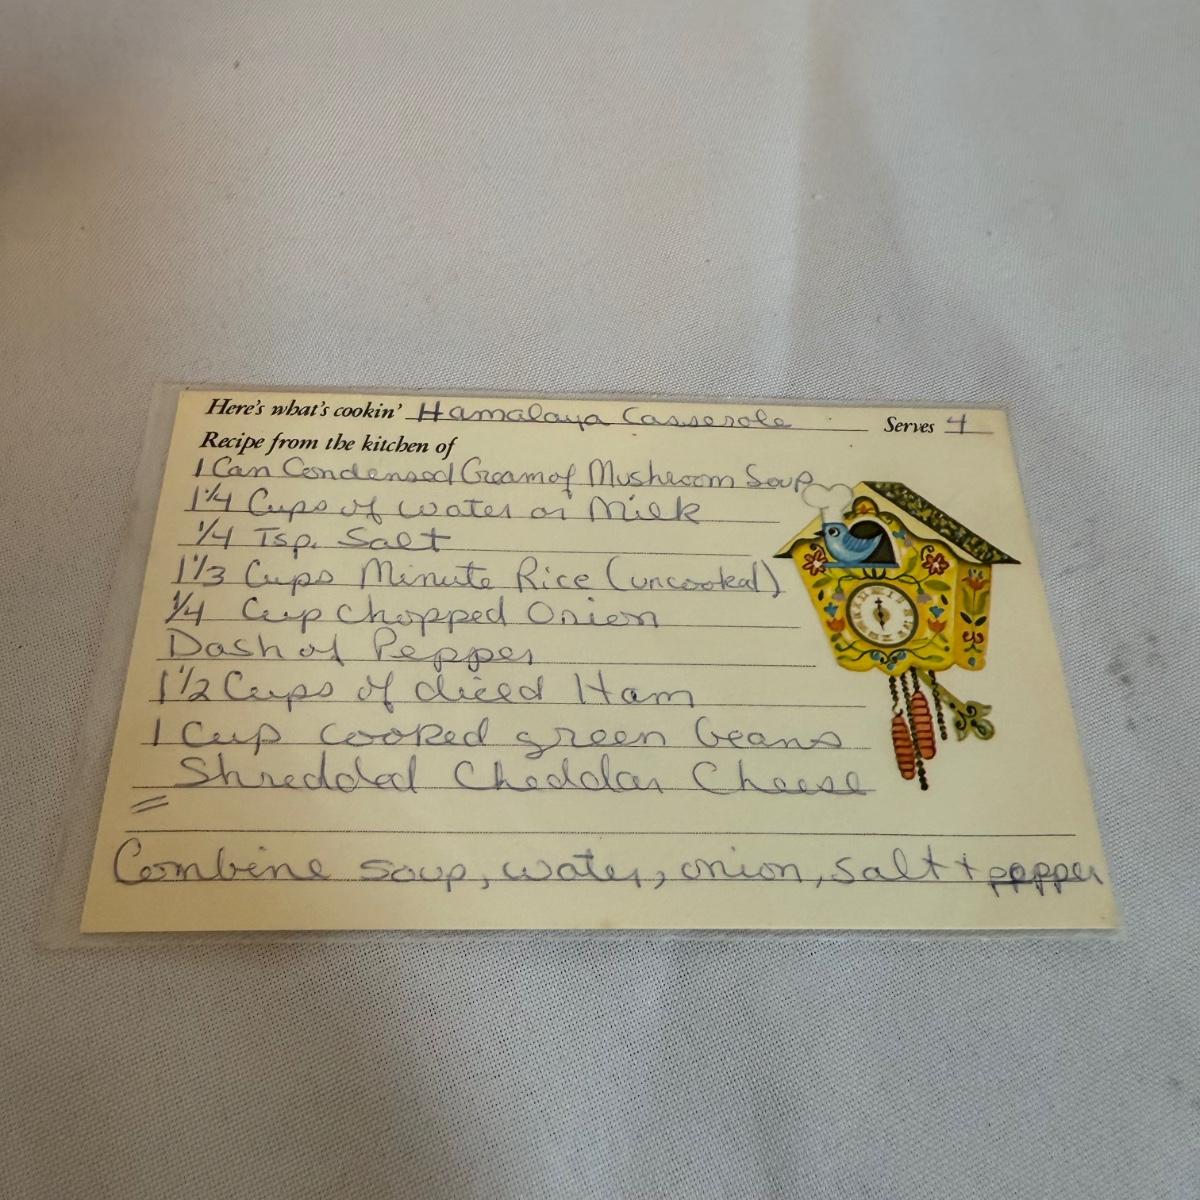 Here's what's cookin' Hamalaya Casserole Serves 4
Recipe from the kitchen of
1 Can Condensed Cream of Mushroom Soup
1 1/4 Cups of water or Milk
1/4 Tsp. Salt
1 1/3 Cups Minute Rice (uncooked)
1/4 Cup Chopped Onion
Dash of Pepper
1 1/2 Cups of diced Ham
1 Cup cooked green beans
Shredded Cheddar Cheese
Combine soup, water, onion, salt + pepper